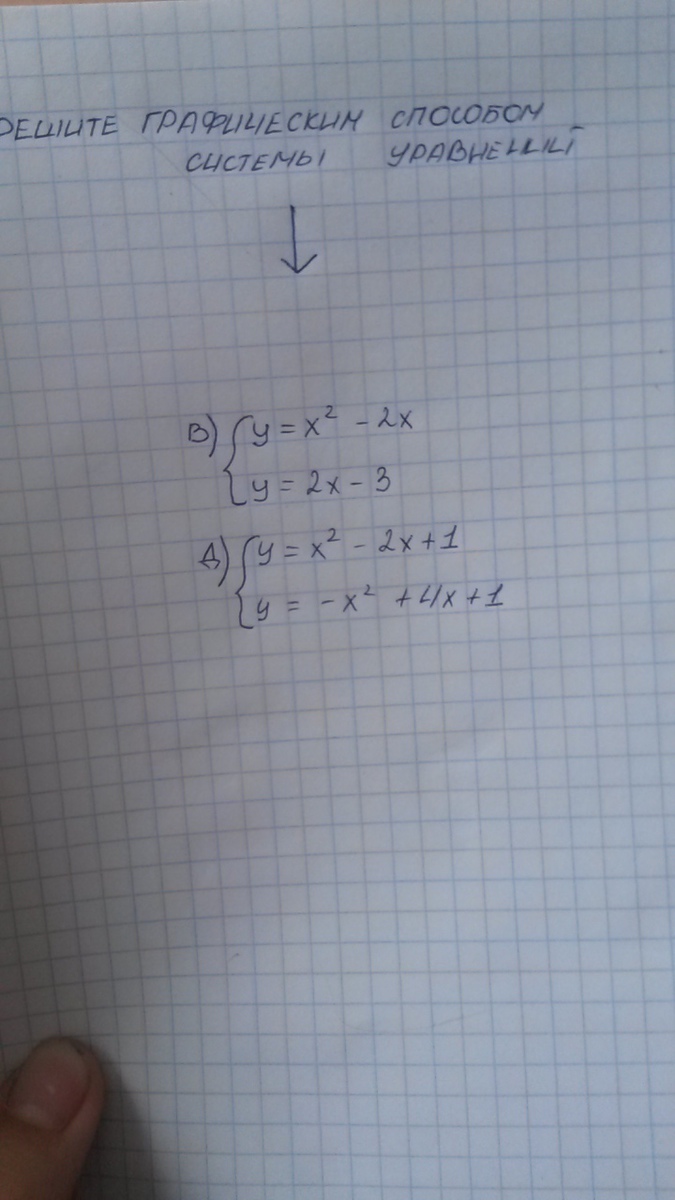 РЕШИТЕ ГРАФИЧЕСКИМ СПОСОБОМ
СИСТЕМЫ УРАВНЕНИЙ
В) { y = x² - 2x
y = 2x - 3
Д) { y = x² - 2x + 1
y = -x² + 4x + 1